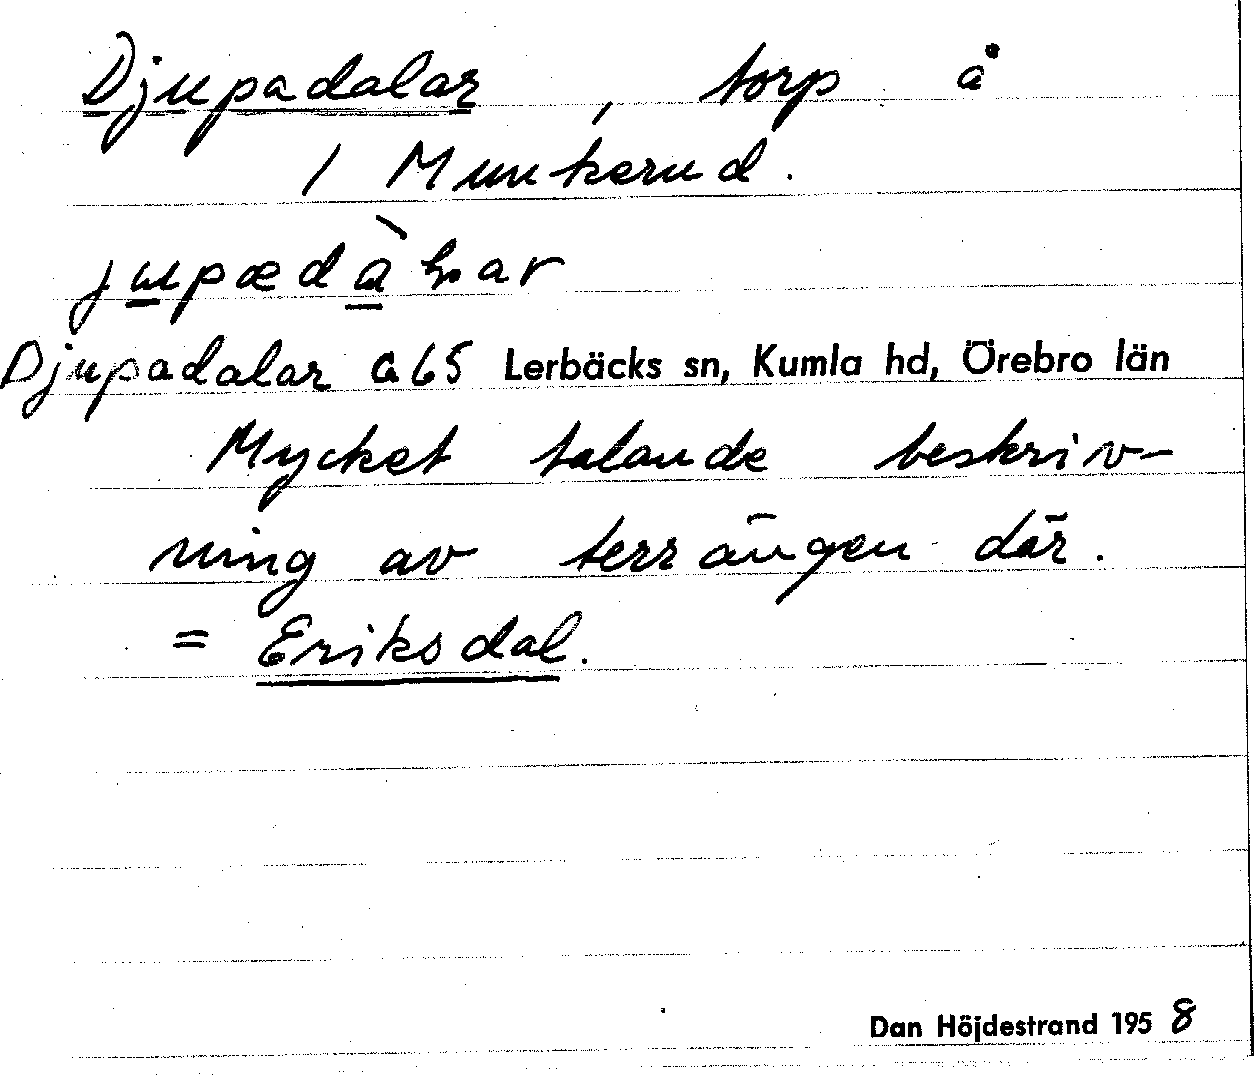 Djupadalar, torp å
1 Munkerud.
Djupadalar G 65 Lerbäcks sn, Kumla hd, Örebro län
Mycket talande beskriv-
ning av terrängen där.
= Eriksdal.
Dan Höjdestrand 1958